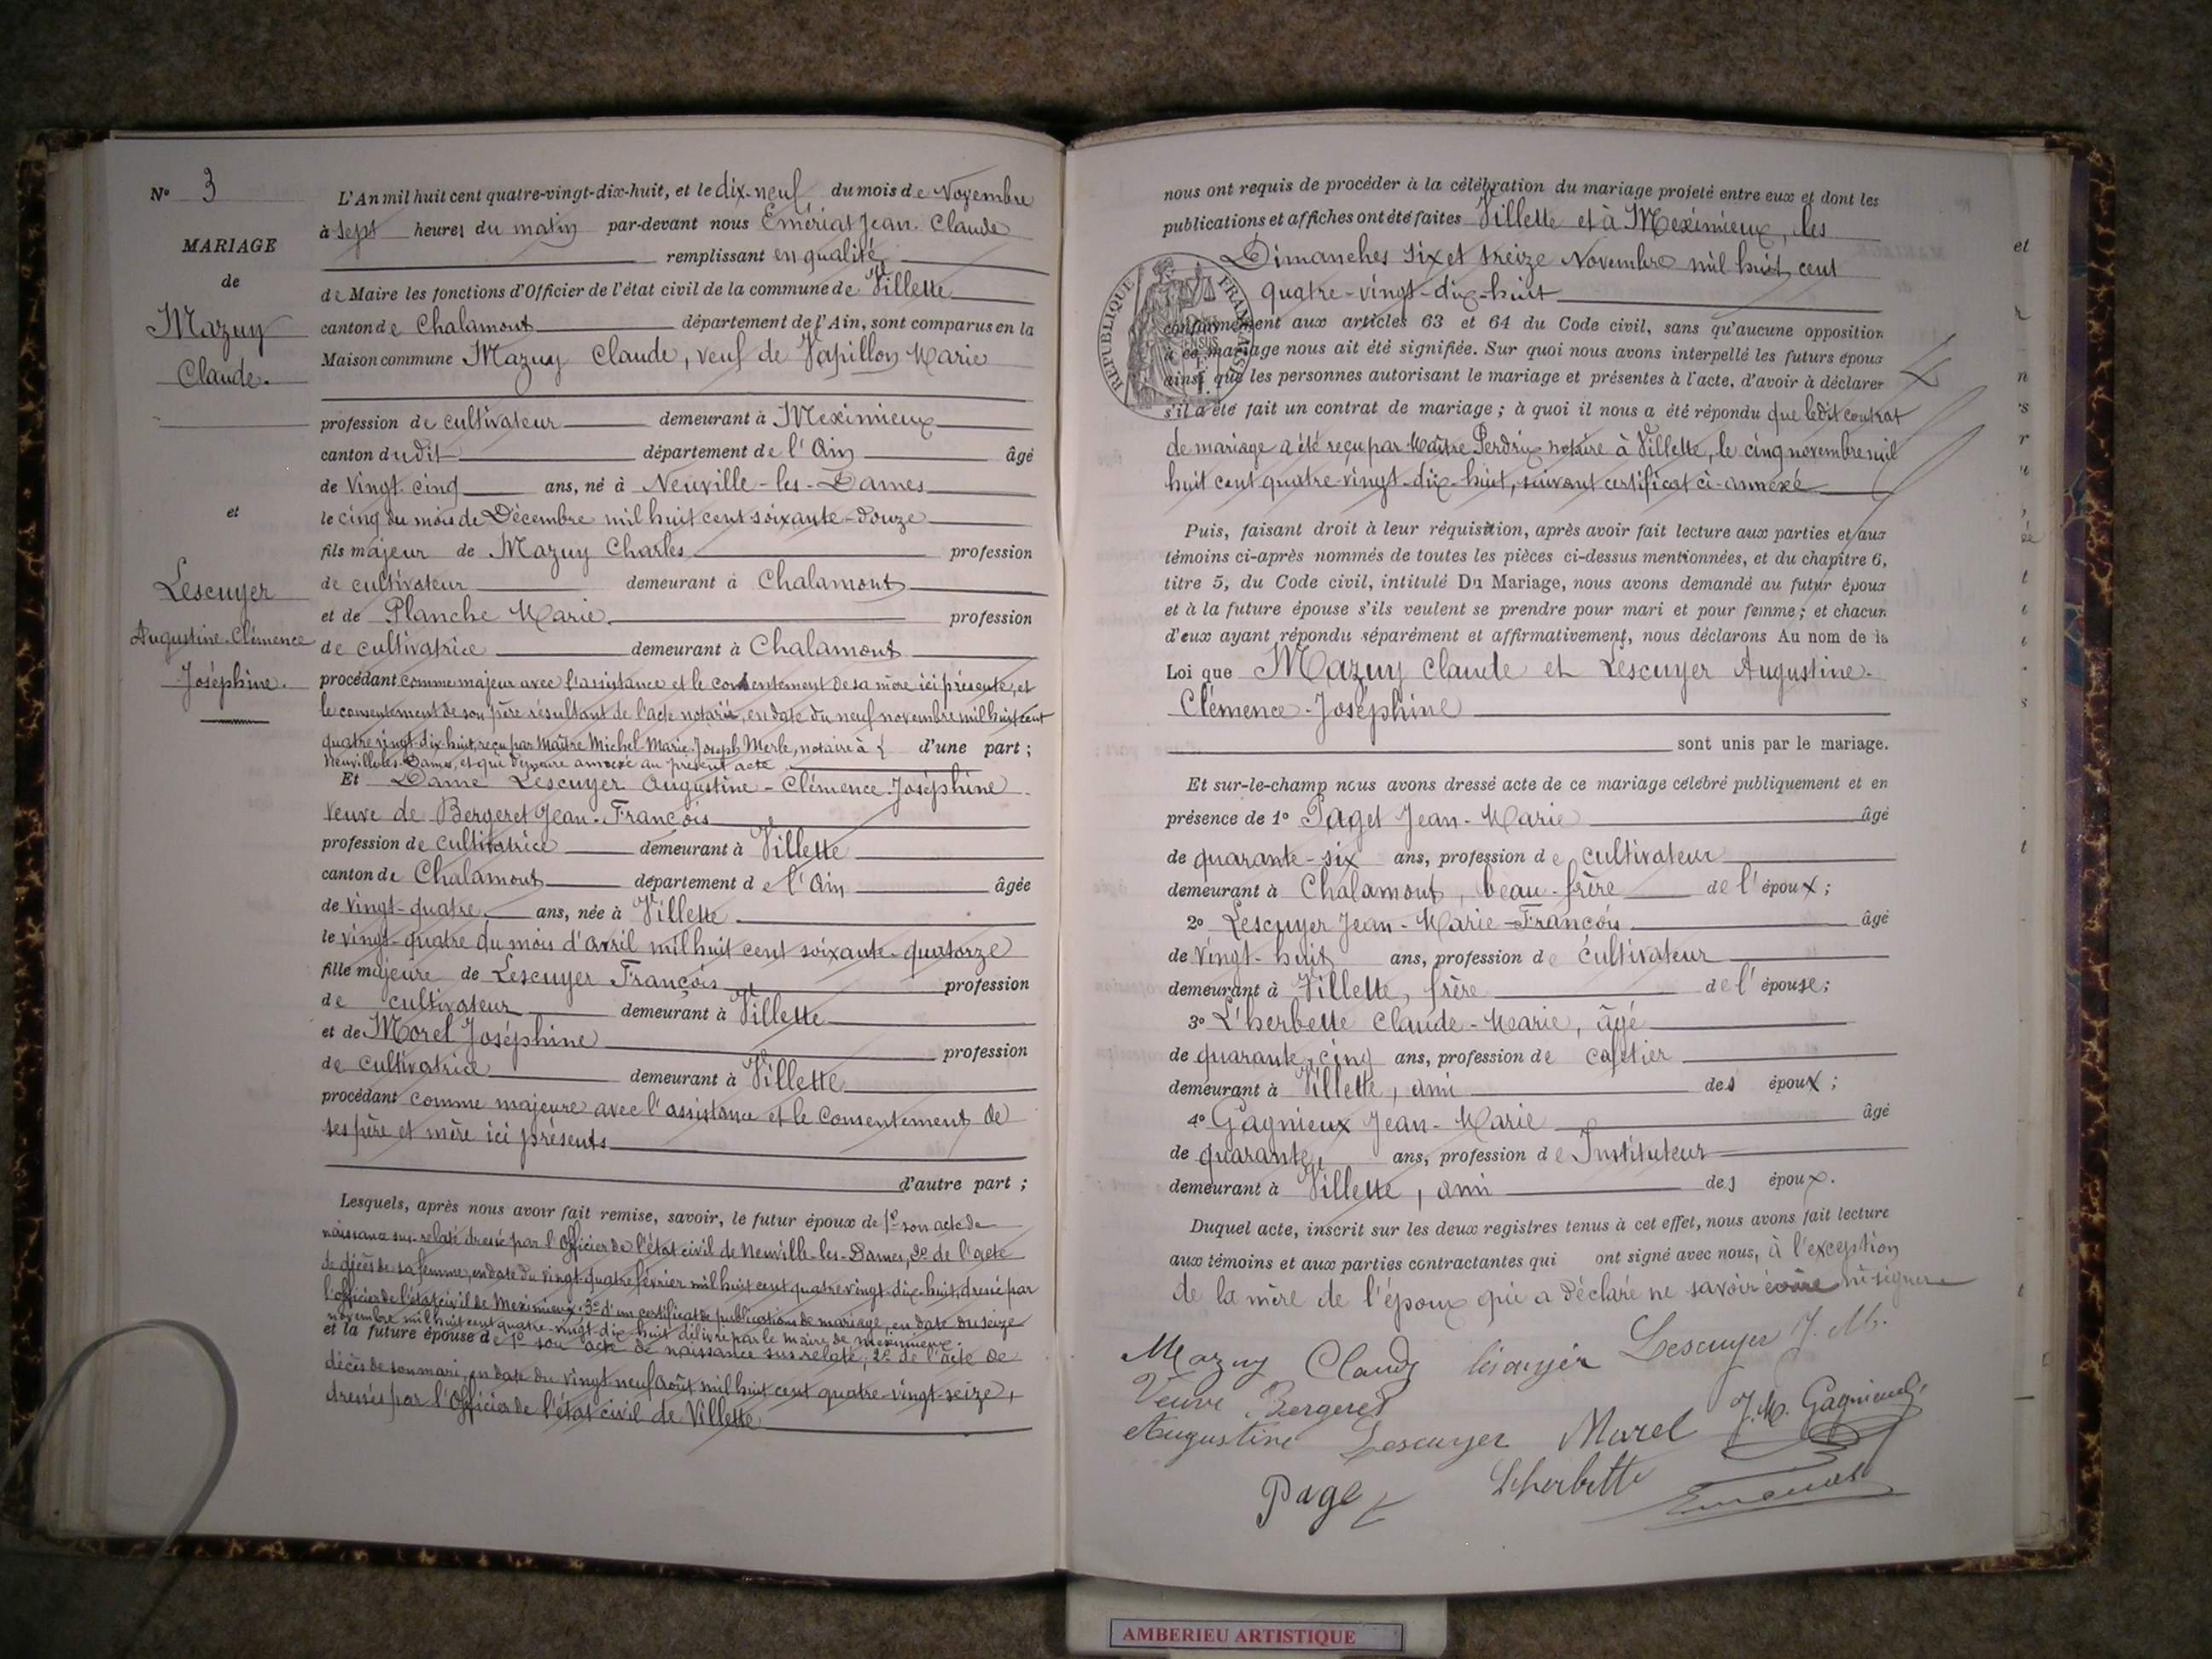 N° 3
MARIAGE
de
Mazuy
Claude.
et
Lescuyer
Augustine-Clémence
Joséphine.
L'An mil huit cent quatre-vingt-dix-huit, et le dix-neuf du mois de Novembre
à sept heures du matin par-devant nous Emériat Jean-Claude
remplissant en qualité
de Maire les fonctions d'Officier de l'état civil de la commune de Villette
canton de Chalamont département de l'Ain, sont comparus en la
Maison commune Mazuy Claude, veuf de Papillon Marie
profession de cultivateur demeurant à Meximieux
canton dudit département de l'Ain âgé
de vingt-cinq ans, né à Neuville-les-Dames
le cinq du mois de Décembre mil huit cent soixante-douze
fils majeur de Mazuy Charles profession
de cultivateur demeurant à Chalamont
et de Planche Marie profession
de cultivatrice demeurant à Chalamont
procédant comme majeur avec l'assistance et le consentement de sa mère ici présente, et
le consentement de son père résultant de l'acte notarié, en date du neuf novembre mil huit cent
quatre vingt-dix-huit, reçu par Maître Michel-Marie-Joseph Merle, notaire à d'une part ;
Neuville-les-Dames, et qui demeure annexé au présent acte
Et Dame Lescuyer Augustine-Clémence-Joséphine
veuve de Bergeret Jean-François
profession de cultivatrice demeurant à Villette
canton de Chalamont département de l'Ain âgée
de vingt-quatre ans, née à Villette
le vingt-quatre du mois d'avril mil huit cent soixante-quatorze
fille majeure de Lescuyer François profession
de cultivateur demeurant à Villette
et de Morel Joséphine profession
de cultivatrice demeurant à Villette
procédant comme majeure avec l'assistance et le consentement de
ses père et mère ici présents
d'autre part ;
Lesquels, après nous avoir fait remise, savoir, le futur époux de 1° son acte de
naissance sus-relaté dressé par l'Officier de l'état civil de Neuville-les-Dames, 2° de l'acte
de décès de sa femme, en date du vingt-quatre février mil huit cent quatre vingt-dix-huit, dressé par
l'officier de l'état civil de Meximieux. 3° d'un certificat de publications de mariage, en date du seize
novembre mil huit cent quatre-vingt-dix-huit délivré par le maire de Meximieux.
et la future épouse de 1° son acte de naissance sus relaté, 2° de l'acte de
décès de son mari, en date du vingt neuf août mil huit cent quatre-vingt-seize,
dressés par l'Officier de l'état civil de Villette
nous ont requis de procéder à la célébration du mariage projeté entre eux et dont les
publications et affiches ont été faites Villette et à Meximieux, les
Dimanches six et treize Novembre mil huit cent
quatre-vingt-dix-huit
REPUBLIQUE FRANÇAISE
conformément aux articles 63 et 64 du Code civil, sans qu'aucune opposition
à ce mariage nous ait été signifiée. Sur quoi nous avons interpellé les futurs époux
ainsi que les personnes autorisant le mariage et présentes à l'acte, d'avoir à déclarer
s'il a été fait un contrat de mariage ; à quoi il nous a été répondu que ledit contrat
de mariage a été reçu par Maître Perdrix notaire à Villette, le cinq novembre mil
huit cent quatre-vingt-dix-huit, suivant certificat ci-annexé
Puis, faisant droit à leur réquisition, après avoir fait lecture aux parties et aux
témoins ci-après nommés de toutes les pièces ci-dessus mentionnées, et du chapitre 6,
titre 5, du Code civil, intitulé Du Mariage, nous avons demandé au futur époux
et à la future épouse s'ils veulent se prendre pour mari et pour femme ; et chacun
d'eux ayant répondu séparément et affirmativement, nous déclarons Au nom de la
Loi que Mazuy Claude et Lescuyer Augustine-
Clémence-Joséphine
sont unis par le mariage.
Et sur-le-champ nous avons dressé acte de ce mariage célébré publiquement et en
présence de 1° Paget Jean-Marie âgé
de quarante-six ans, profession de cultivateur
demeurant à Chalamont, beau-frère de l'époux ;
2° Lescuyer Jean-Marie-François âgé
de vingt-huit ans, profession de cultivateur
demeurant à Villette, frère de l'épouse ;
3° L'herbette Claude-Marie, âgé
de quarante-cinq ans, profession de cafetier
demeurant à Villette, ami des époux ;
4° Gagnieux Jean-Marie âgé
de quarante ans, profession de Instituteur
demeurant à Villette, ami des époux.
Duquel acte, inscrit sur les deux registres tenus à cet effet, nous avons fait lecture
aux témoins et aux parties contractantes qui ont signé avec nous, à l'exception
de la mère de l'époux qui a déclaré ne savoir écrire ni signer
Mazuy Claude Lescuyer Lescuyer J. M.
Veuve Bergeret
Augustine Lescuyer Morel J. M. Gagnieux
Paget Lherbette Emeriat
AMBERIEU ARTISTIQUE